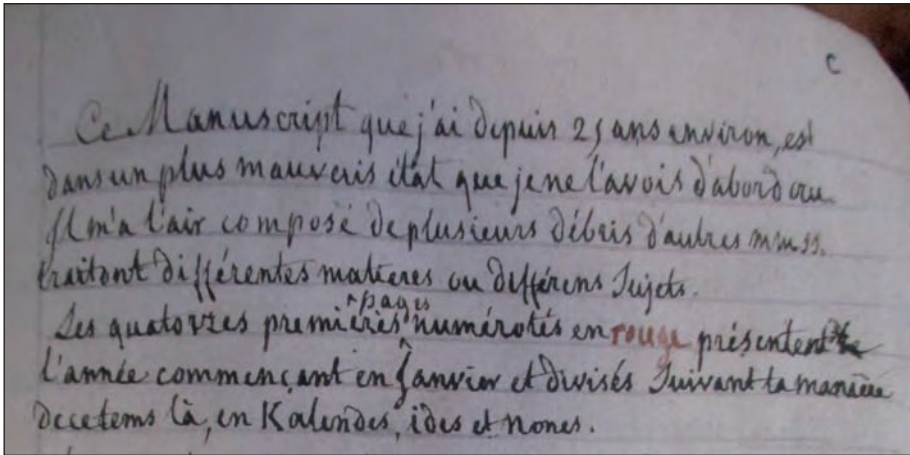 c
Ce Manuscript que j'ai depuis 25 ans environ, est
dans un plus mauvais état que je ne l'avois d'abord cru
Il m'a l'air composé de plusieurs débris d'autres mmss.
traitant différentes matieres ou différens Sujets.
pages
Les quatorzes premières numérotés en rouge présentent
l'année commençant en Janvier et divisés Suivant la manière
de ce tems là, en Kalendes, ides et Nones.